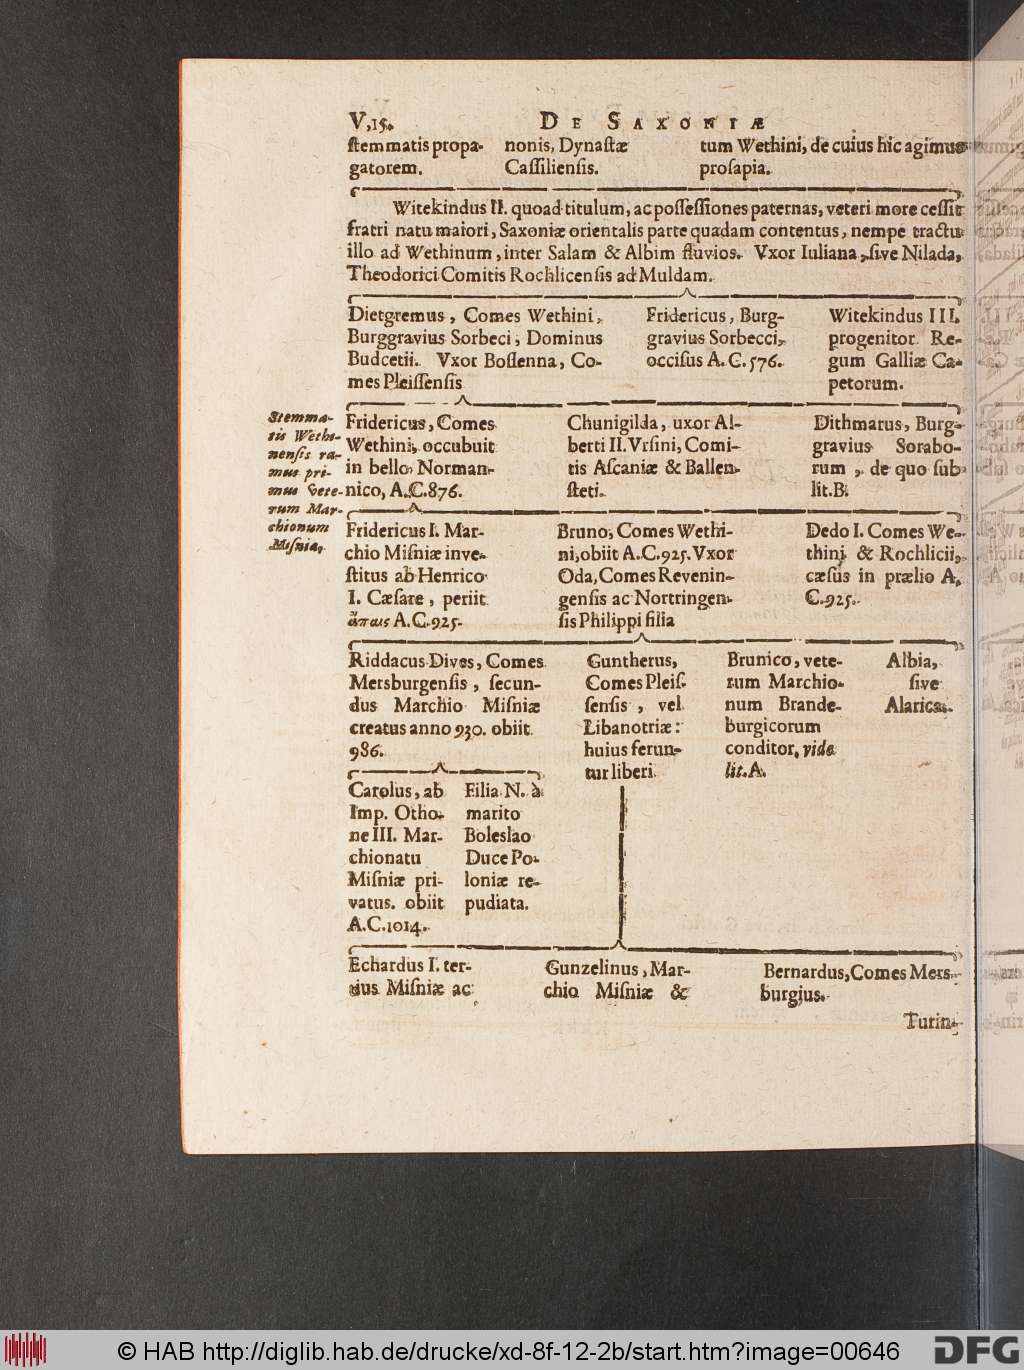 V,15.
DE SAXONIÆ
ſtemmatis propa-
gatorem.
nonis, Dynaſtæ
Caſſilienſis.
tum Wethini, de cuius hic agimus
proſapia.
Witekindus II. quoad titulum, ac poſſeſſiones paternas, veteri more ceſſit
fratri natu maiori, Saxoniæ orientalis parte quadam contentus, nempe tractu
illo ad Wethinum, inter Salam & Albim fluvios. Vxor Iuliana, ſive Nilada,
Theodorici Comitis Rochlicenſis ad Muldam.
Dietgremus, Comes Wethini,
Burggravius Sorbeci, Dominus
Budcetii. Vxor Boſlenna, Co-
mes Pleiſſenſis
Fridericus, Burg-
gravius Sorbecci,
occiſus A. C. 576.
Witekindus III,
progenitor Re-
gum Galliæ Ca-
petorum.
Stemma-
tis Wethi-
nenſis ra-
mus pri-
mus Vete-
rum Mar-
chionum
Miſniæ,
Fridericus, Comes
Wethini, occubuit
in bello Norman-
nico, A. C. 876.
Chunigilda, uxor Al-
berti II. Vrſini, Comi-
tis Aſcaniæ & Ballen-
ſteti.
Dithmarus, Burg-
gravius Sorabo-
rum, de quo ſub
lit. B.
Fridericus I. Mar-
chio Miſniæ inve-
ſtitus ab Henrico
I. Cæſare, periit
ἄπαις A. C. 925.
Bruno, Comes Wethi-
ni, obiit A. C. 925. Vxor
Oda, Comes Revenin-
genſis ac Nortringen-
ſis Philippi filia
Dedo I. Comes We-
thinj & Rochlicii,
cæſus in prælio A.
C. 925.
Riddacus Dives, Comes
Mersburgenſis, ſecun-
dus Marchio Miſniæ
creatus anno 930. obiit
986.
Guntherus,
Comes Pleiſ-
ſenſis, vel
Libanotriæ:
huius ferun-
tur liberi
Brunico, vete-
rum Marchio-
num Brande-
burgicorum
conditor, vide
lit. A.
Albia,
ſive
Alarica.
Carolus, ab
Imp. Otho-
ne III. Mar-
chionatu
Miſniæ pri-
vatus. obiit
A. C. 1014.
Filia N. à
marito
Boleslao
Duce Po-
loniæ re-
pudiata.
Echardus I. ter-
tius Miſniæ ac
Gunzelinus, Mar-
chio Miſniæ &
Bernardus, Comes Mers-
burgius.
Turin-
© HAB http://diglib.hab.de/drucke/xd-8f-12-2b/start.htm?image=00646
DFG